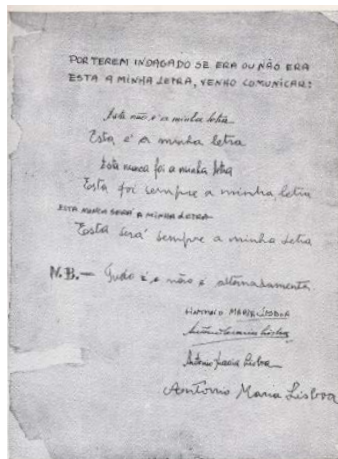 POR TEREM INDAGADO SE ERA OU NÃO ERA
ESTA A MINHA LETRA, VENHO COMUNICAR:
Esta não é a minha letra
Esta é a minha letra
Esta nunca foi a minha letra
Esta foi sempre a minha letra
ESTA NUNCA SERÁ A MINHA LETRA
Esta será sempre a minha letra
N.B.— Tudo é e não é alternadamente
MARIA LISBOA
António Maria Lisboa
António Maria Lisboa
Antonio Maria Lisboa